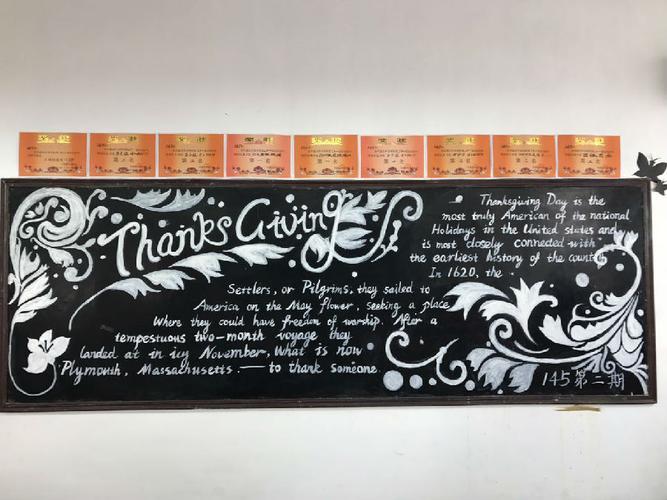 奖状
奖状
奖状
奖状
奖状
奖状
奖状
奖状
奖状
Thanks Giving
Thanksgiving Day is the
most truly American of the national
Holidays in the United states and
is most closely connected with
the earliest history of the country
In 1620, the
Settlers, or Pilgrims, they sailed to
America on the May flower, seeking a place
Where they could have freedom of worship. After a
tempestuous two-month voyage they
landed at in icy November, What is now
Plymouth, Massachusetts. — to thank someone.
145第二期